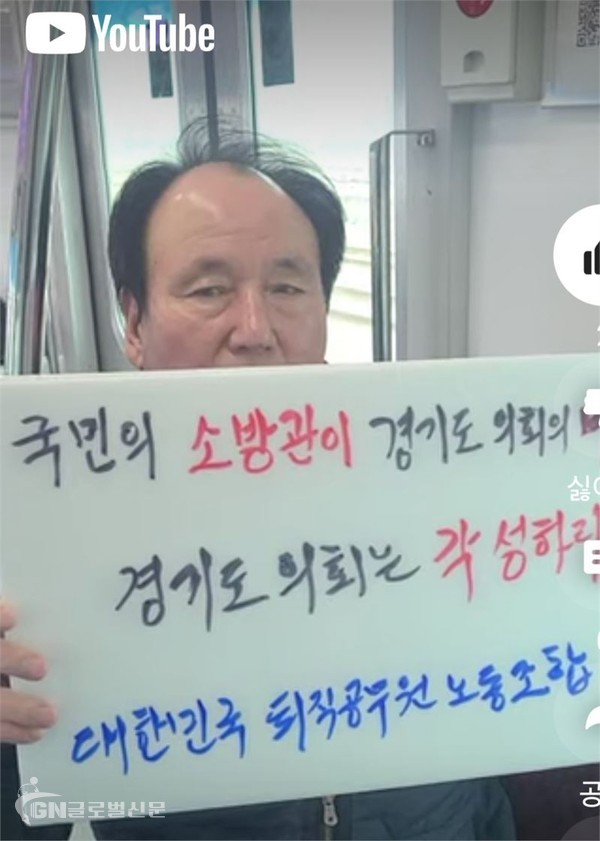 YouTube
국민의 소방관이 경기도 의회의
경기도 의회는 각성하라
대한민국 퇴직공무원 노동조합
싫어
공
GN글로벌신문